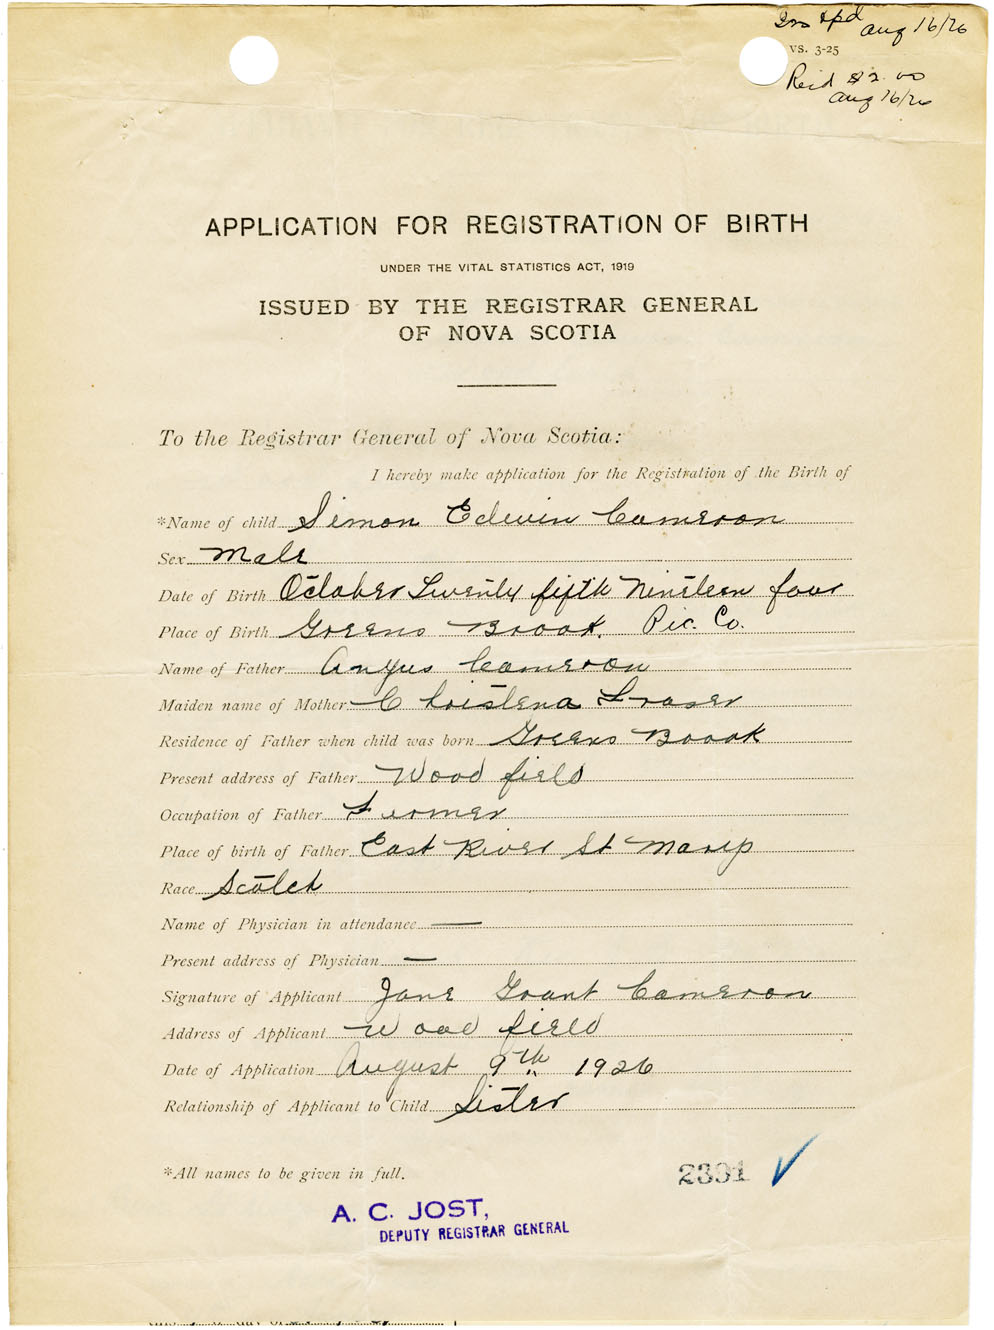 Ins rpd Aug 16/26
VS. 3-25
Rec'd $2.00
Aug 16/26
APPLICATION FOR REGISTRATION OF BIRTH
UNDER THE VITAL STATISTICS ACT, 1919
ISSUED BY THE REGISTRAR GENERAL
OF NOVA SCOTIA
To the Registrar General of Nova Scotia:
I hereby make application for the Registration of the Birth of
*Name of child Simon Edwin Cameron
Sex Male
Date of Birth October Twenty fifth Nineteen four
Place of Birth Greens Brook. Pic. Co.
Name of Father Angus Cameron
Maiden name of Mother Christena Fraser
Residence of Father when child was born Greens Brook
Present address of Father Wood field
Occupation of Father Farmer
Place of birth of Father East River St Marys
Race Scotch
Name of Physician in attendance —
Present address of Physician —
Signature of Applicant Jane Grant Cameron
Address of Applicant Wood field
Date of Application August 9th 1926
Relationship of Applicant to Child Sister
*All names to be given in full.
2391 ✓
A. C. JOST,
DEPUTY REGISTRAR GENERAL